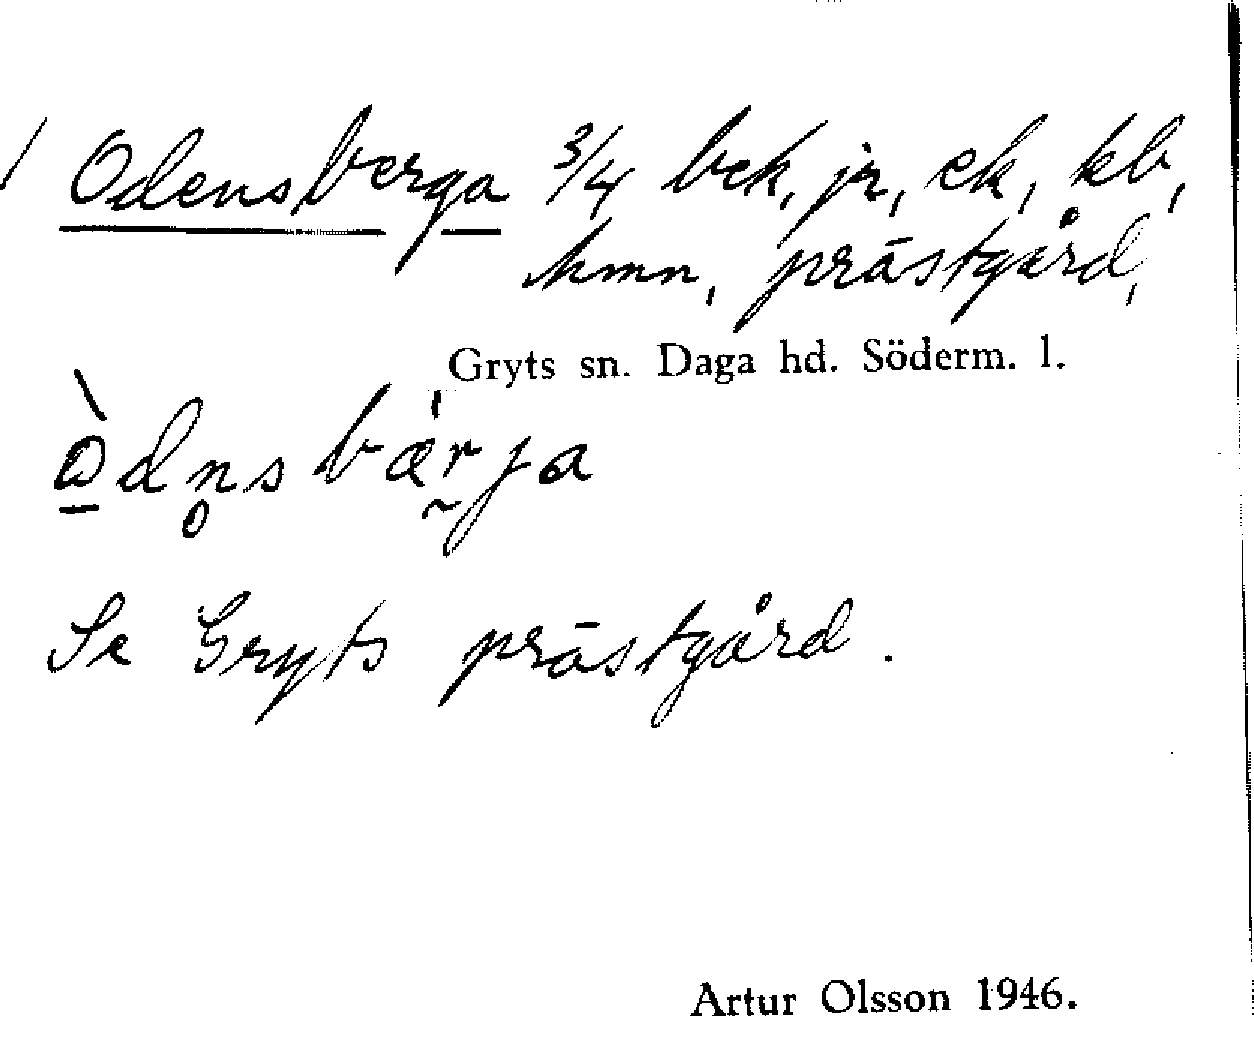 Odensberga 3/4 bck, jr, ek, kb,
hmn, prästgård,
Gryts sn. Daga hd. Söderm. l.
ò̱dn̥sbæ̀rja
Se Gryts prästgård.
Artur Olsson 1946.